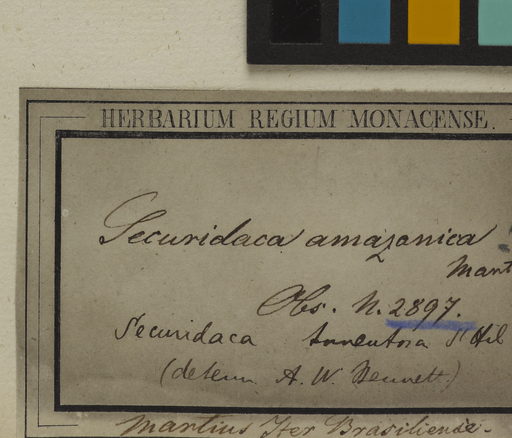 HERBARIUM REGIUM MONACENSE.
Securidaca amazonica
Mart
Obs. N. 2897.
Securidaca tomentosa St Hil
(determ A. W. Bennett.)
Martius Iter Brasiliense.